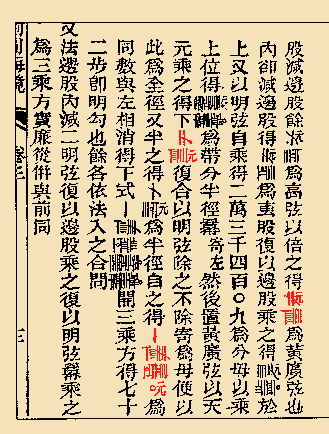 股減邊股餘為高弦以倍之得為黃廣弦也
內卻減邊股得為叀股復以邊股乘之得於
上又以明弦自乘得二萬三千四百〇九為分母以乘
上位得為帶分半徑冪寄左然後置黃廣弦以天
元乘之得下元復合以明弦除之不除寄為母便以
此為全徑又半之得元為半徑自之得元為
同數與左相消得下式開三乘方得七十
二步即明勾也餘各依法入之合問
又法邊股內減二明弦復以邊股乘之復以明弦冪乘之
為三乘方實廉從併與前同
海鏡 卷三 三